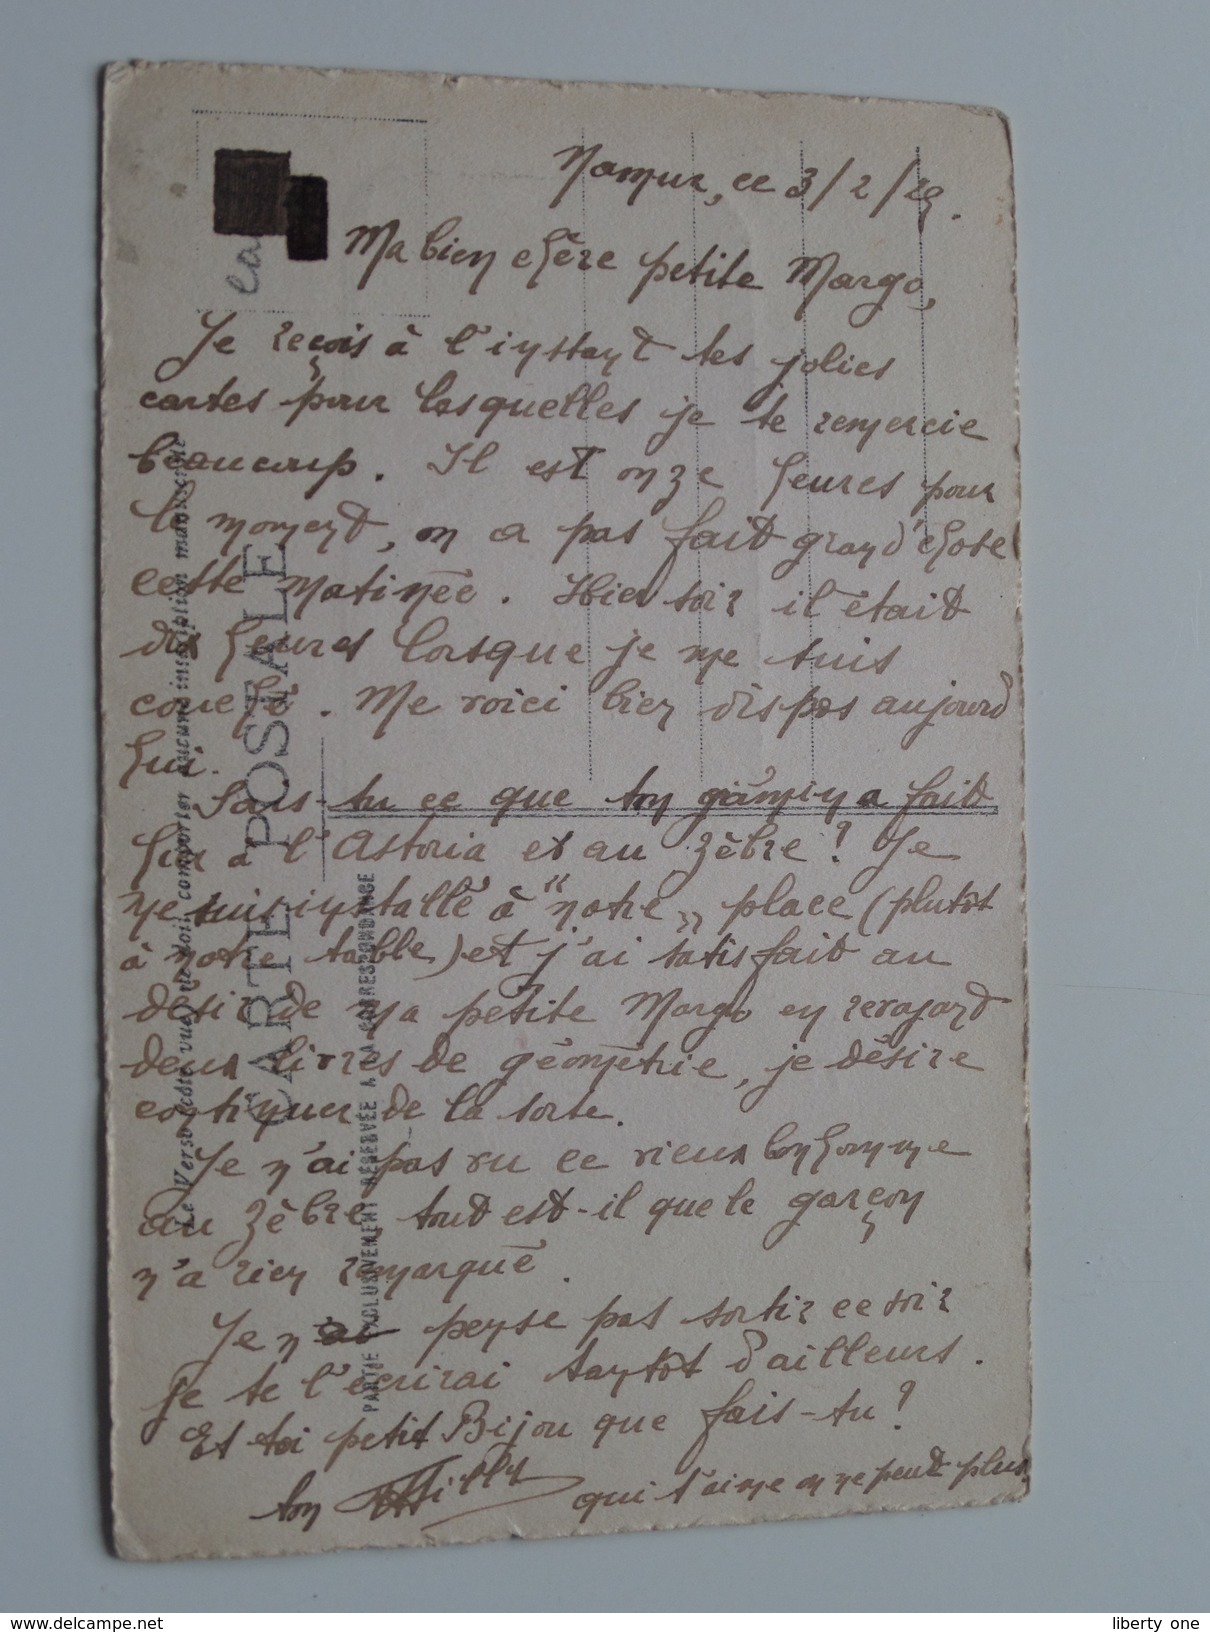 Namur, ce 3/2/29.
Ma bien chère petite Margo,
Je reçois à l'instant tes jolies
cartes pour lesquelles je te remercie
beaucoup. Il est onze heures pour
le moment, on a pas fait grand'chose
cette matinée. Hier soir il était
dix heures lorsque je me suis
couché. Me voici bien dispos aujourd
hui.
Sais-tu ce que ton gamin a fait
hier à l'Astoria et au Zèbre? Je
me suis installé à "notre" place (plutôt
à notre table) et j'ai satisfait au
désir de ma petite Margo en revoyant
deux livres de géométrie, je désire
continuer de la sorte.
Je n'ai pas vu ce vieux bonhomme
au Zèbre, tout est-il que le garçon
n'a rien remarqué.
Je n pense pas sortir ce soir
je te l'écrirai tantôt d'ailleurs.
Et toi petit Bijou que fais-tu?
ton Willy qui t'aime on ne peut plus
CARTE POSTALE
Le Verso (côté vue) ne doit comporter aucune inscription manuscrite
PARTIE EXCLUSIVEMENT RÉSERVÉE A LA CORRESPONDANCE
http://www.delcampe.net
liberty one